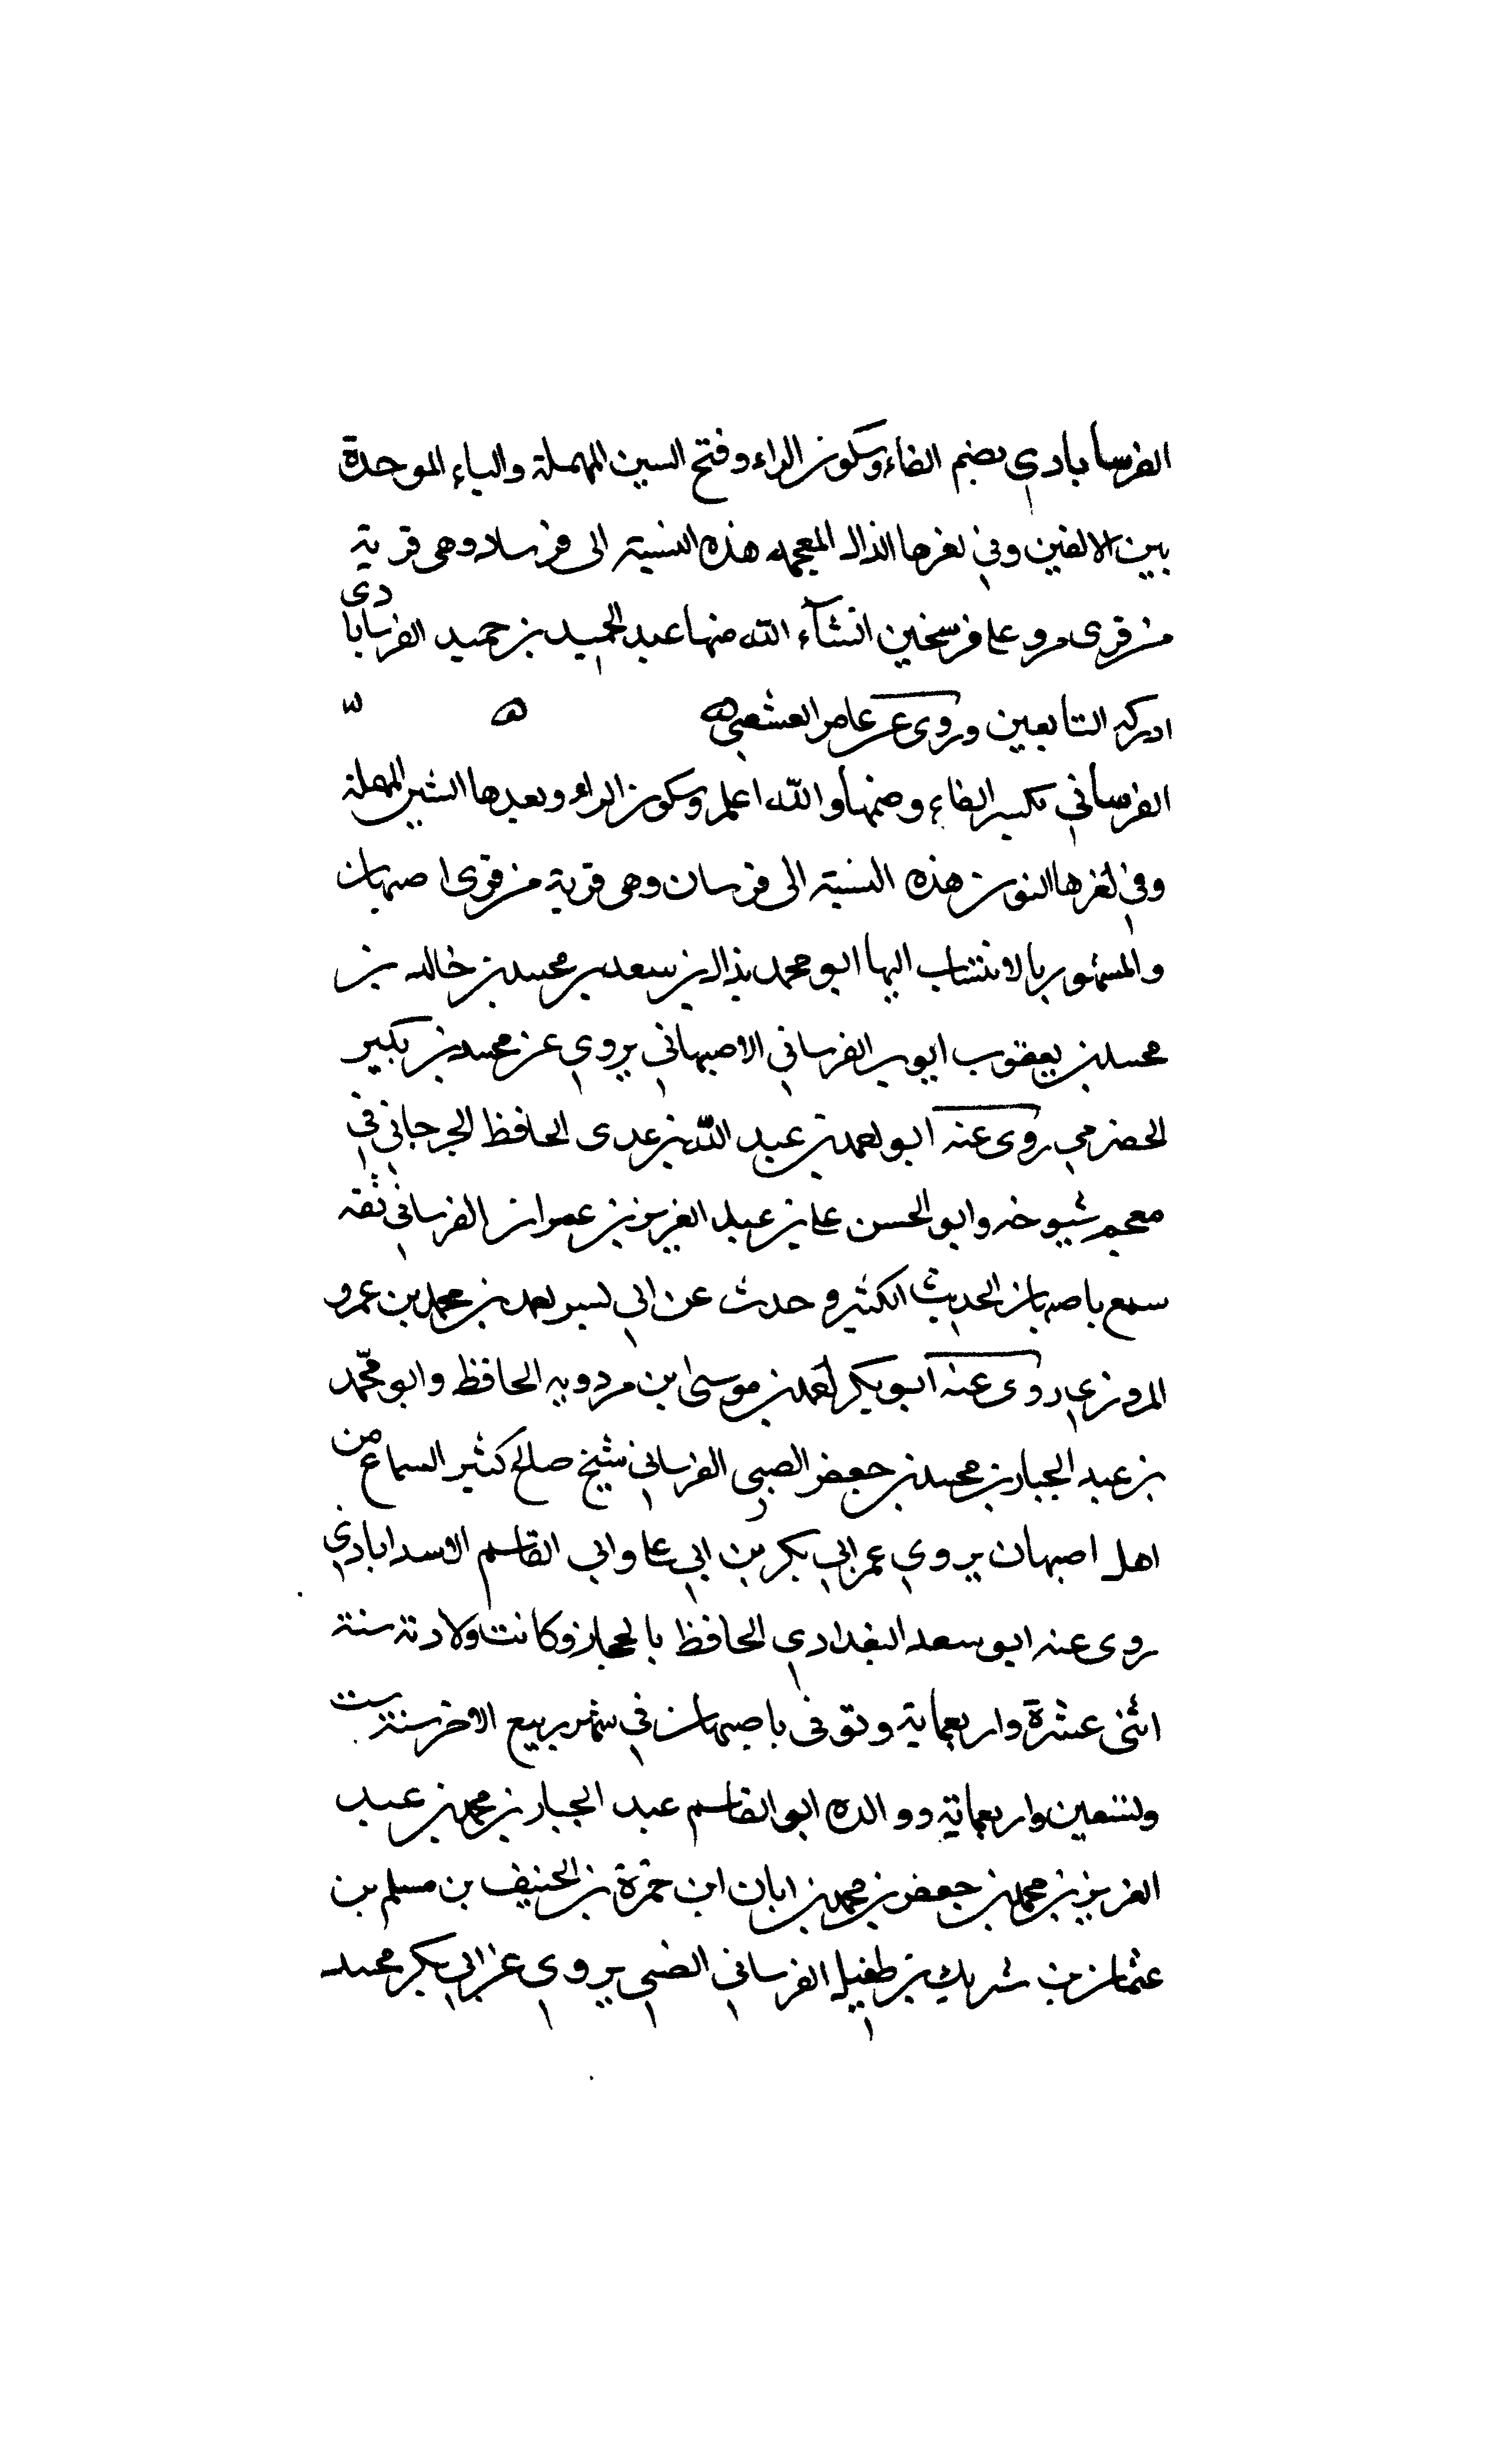 الفرسابادي بضم الفاء وسكون الراء وفتح السين المهملة والباء الموحدة
بين الالفين وفي اخرها الذال المعجمة هذه النسبة الى فرساد وهي قرية
من قرى مرو على فرسخين انشآء الله منها عبد الحميد بن حميد الفرسابا دى
ادركه التابعين وروى عن عامر الشعبي ه ه
الفرساني بكسر الفاء وضمها والله اعلم وسكون الراء وبعدها السين المهملة
وفي اخرها النون هذه النسبة الى فرسان وهي قرية من قرى اصبهان
والمشهور بالانتساب اليها ابو محمد بذال بن سعد بن محمد بن خالد بن
محمد بن يعقوب ايوب الفرساني الاصبهاني يروي عن محمد بن بكير
الحضرمي روى عنه ابو احمد بن عبد الله بن عدى الحافظ الجرجاني في
معجم شيوخه وابو الحسن علي بن عبد العزيز بن عمران الفرساني ثقه
سمع باصبهان الحديث الكثير و حدث عن ابي احمد بن محمد بن عمرو
المروزي روى عنه ابو بكر احمد بن موسى ابن مردويه الحافظ وابو محمد
بن عبد الجبار بن محمد بن جعفر الضبي الفرساني شيخ صالح كثير السماع من
اهل اصبهان يروي عن ابي بكر بن ابي علي وابي القاسم الاسدابادي
روى عنه ابو سعد البغدادي الحافظ بالحجاز وكانت ولادته سنة
اثنى عشرة واربعماية وتوفى باصبهان في شهر ربيع الاخر سنة ست
وتسعين واربعماية ووالده ابو القاسم عبد الجبار بن محمد بن عبد
العزيز بن محمد بن جعفر بن محمد بن ابان ابن حمزة بن الحنيف بن مسلم بن
عثمان بن شريك بن طفيل الفرساني الضبي يروي عن ابي بكر محمد